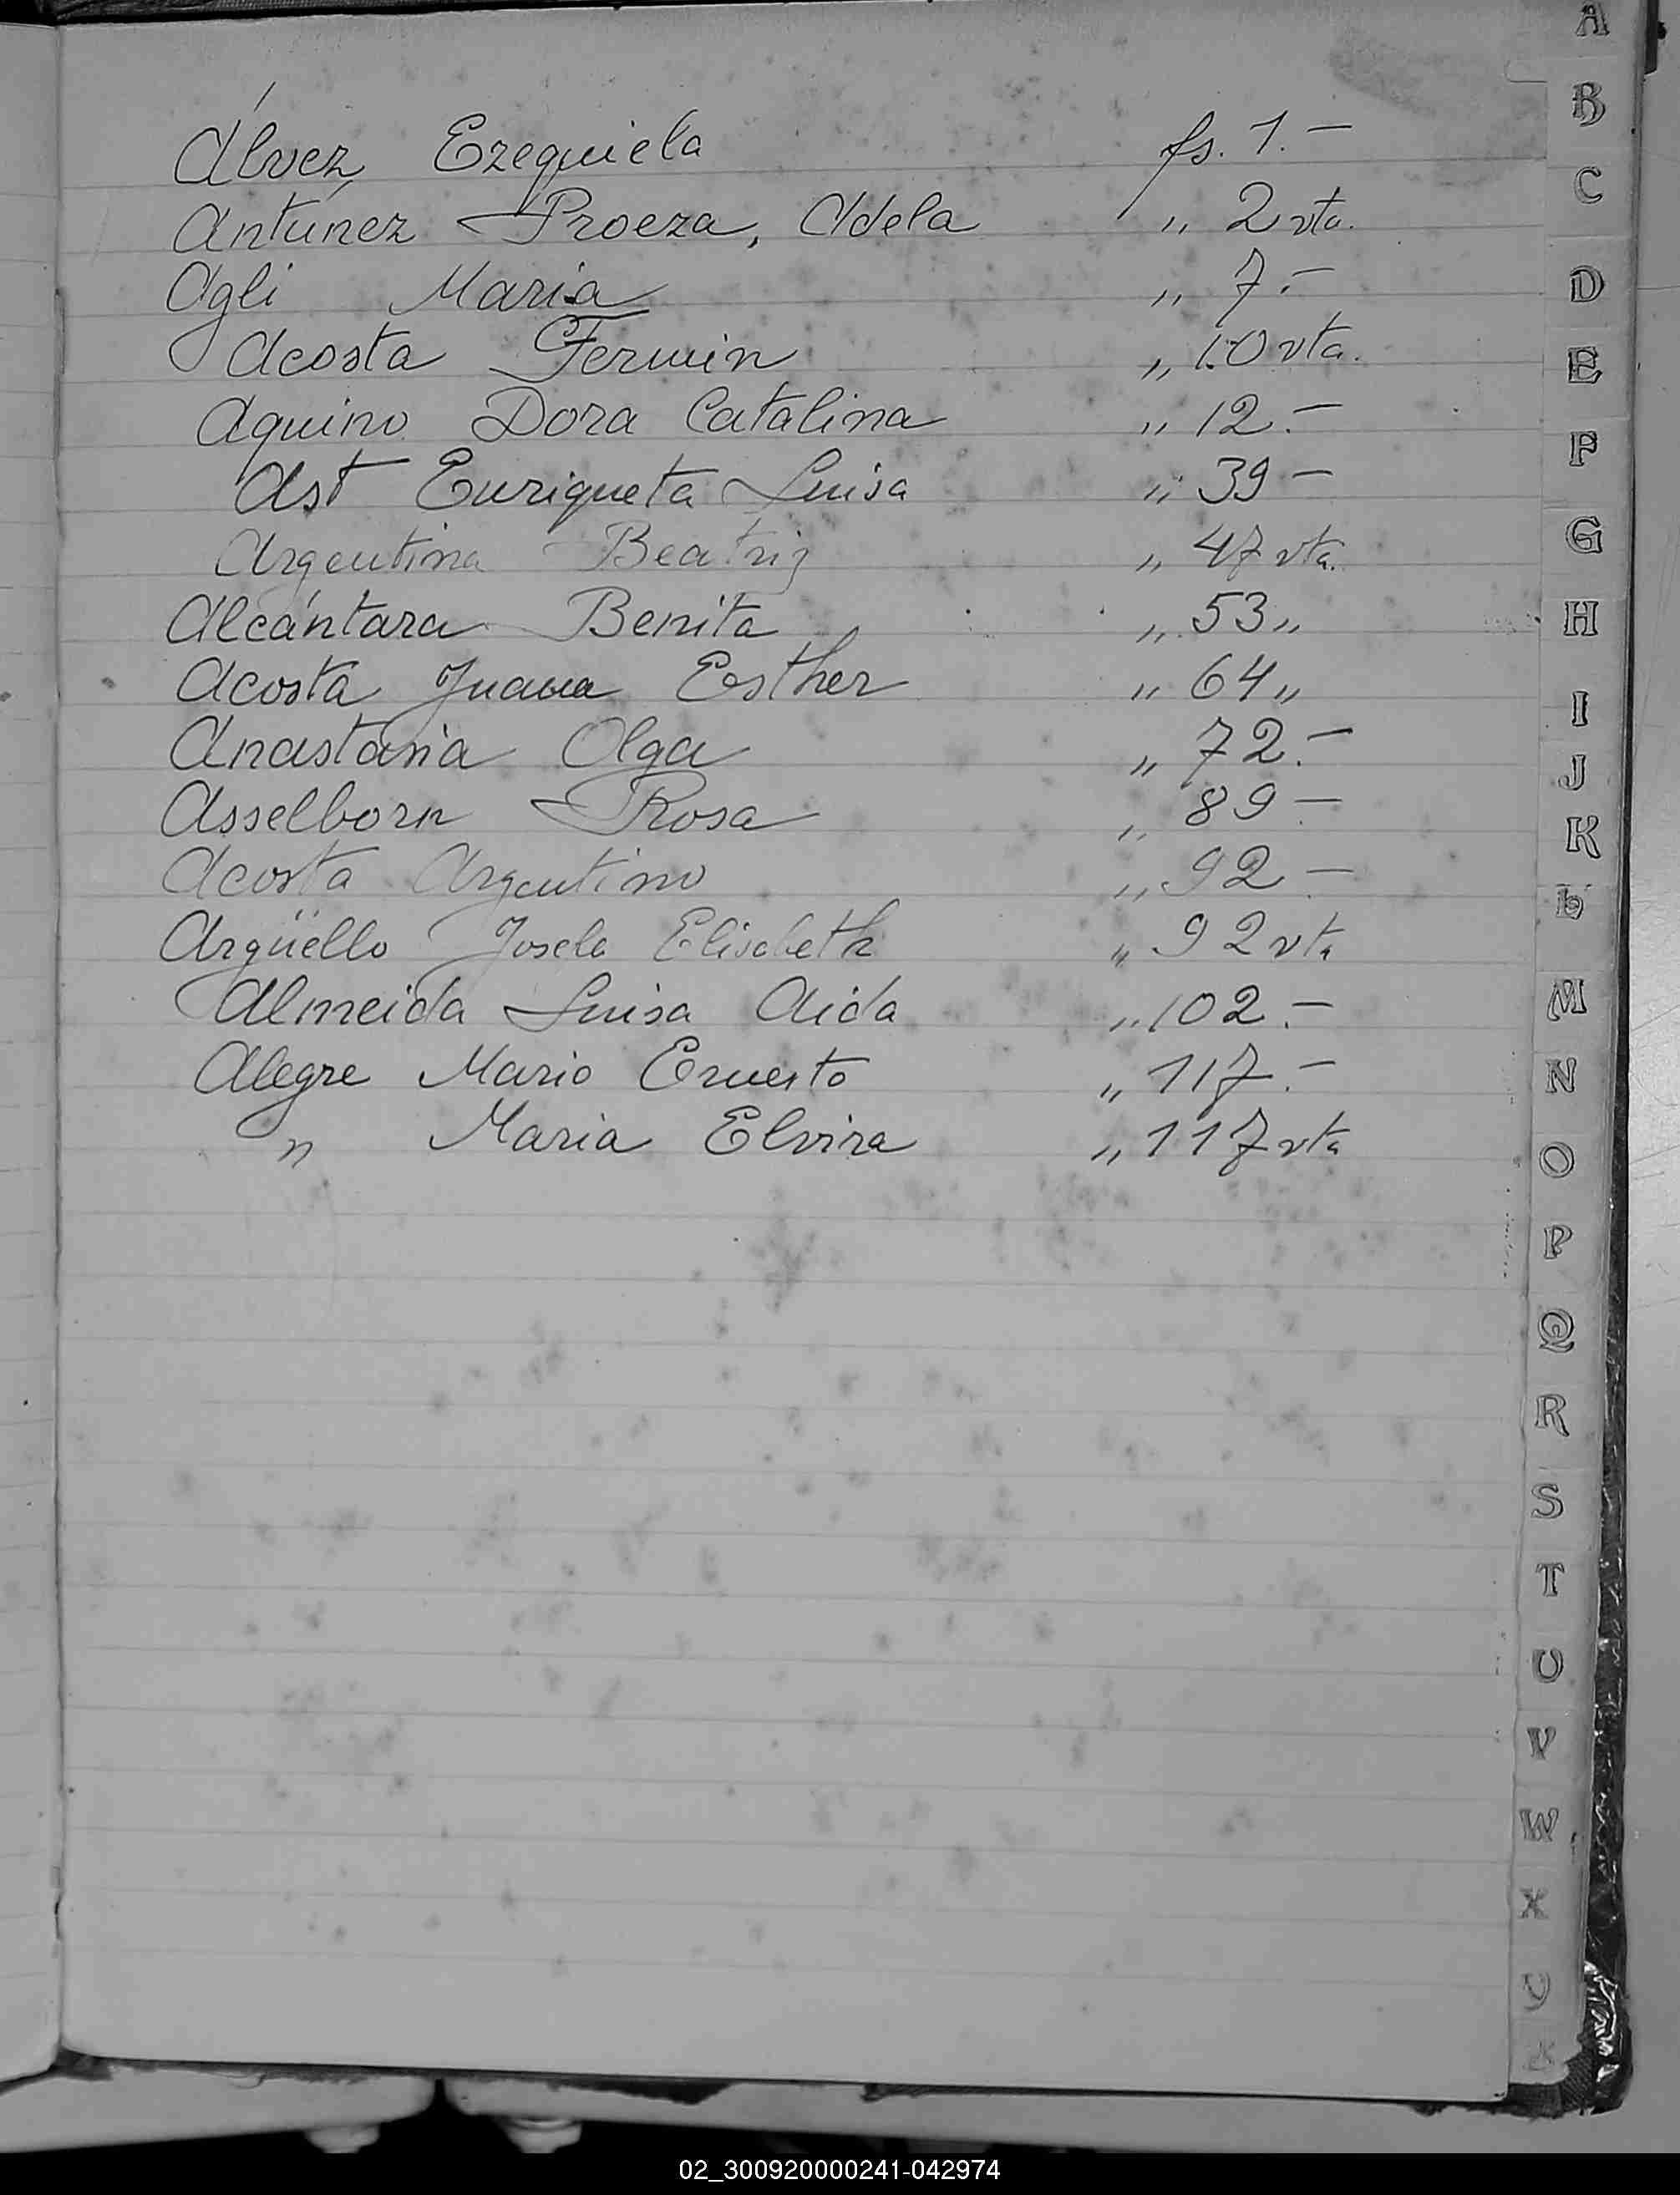 Álvez, Ezequiela fs. 1.—
Antúnez Proeza, Adela „ 2 vta.
Agli Maria „ 7.—
Acosta Fermin „ 10 vta.
Aquino Dora Catalina „ 12.—
Ast Enriqueta Luisa „ 39 —
Argentina Beatriz „ 47 vta.
Alcántara Benita „ 53 „
Acosta Juana Esther „ 64 „
Anastasia Olga „ 72.—
Asselborn Rosa „ 89 —
Acosta Argentino „ 92 —
Argüello Elisabeth „ 92 vta
Almeida Luisa Aida „ 102.—
Alegre Mario Ernesto „ 117.—
„ Maria Elvira „ 117 vta
A
B
C
D
E
F
G
H
I
J
K
L
M
N
O
P
Q
R
S
T
U
V
W
X
Y
02_300920000241-042974